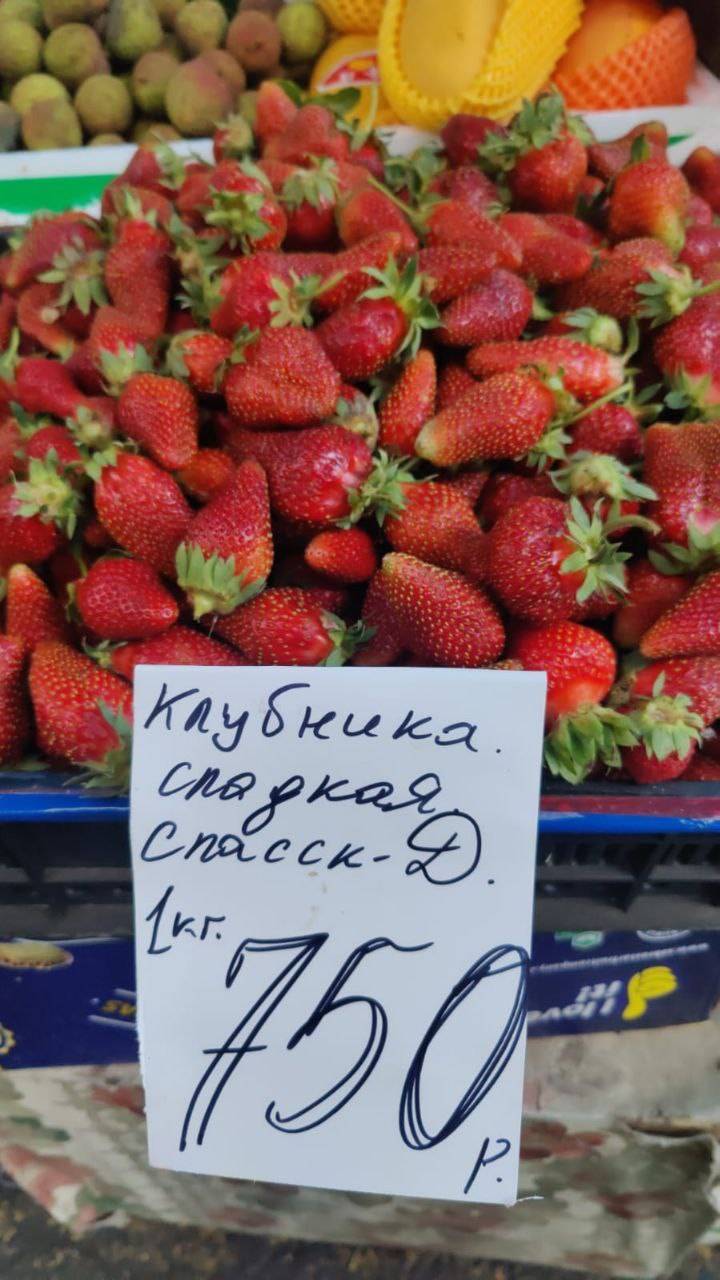 Клубника.
сладкая.
Спасск-Д.
1кг.
750
р.
I love
it!